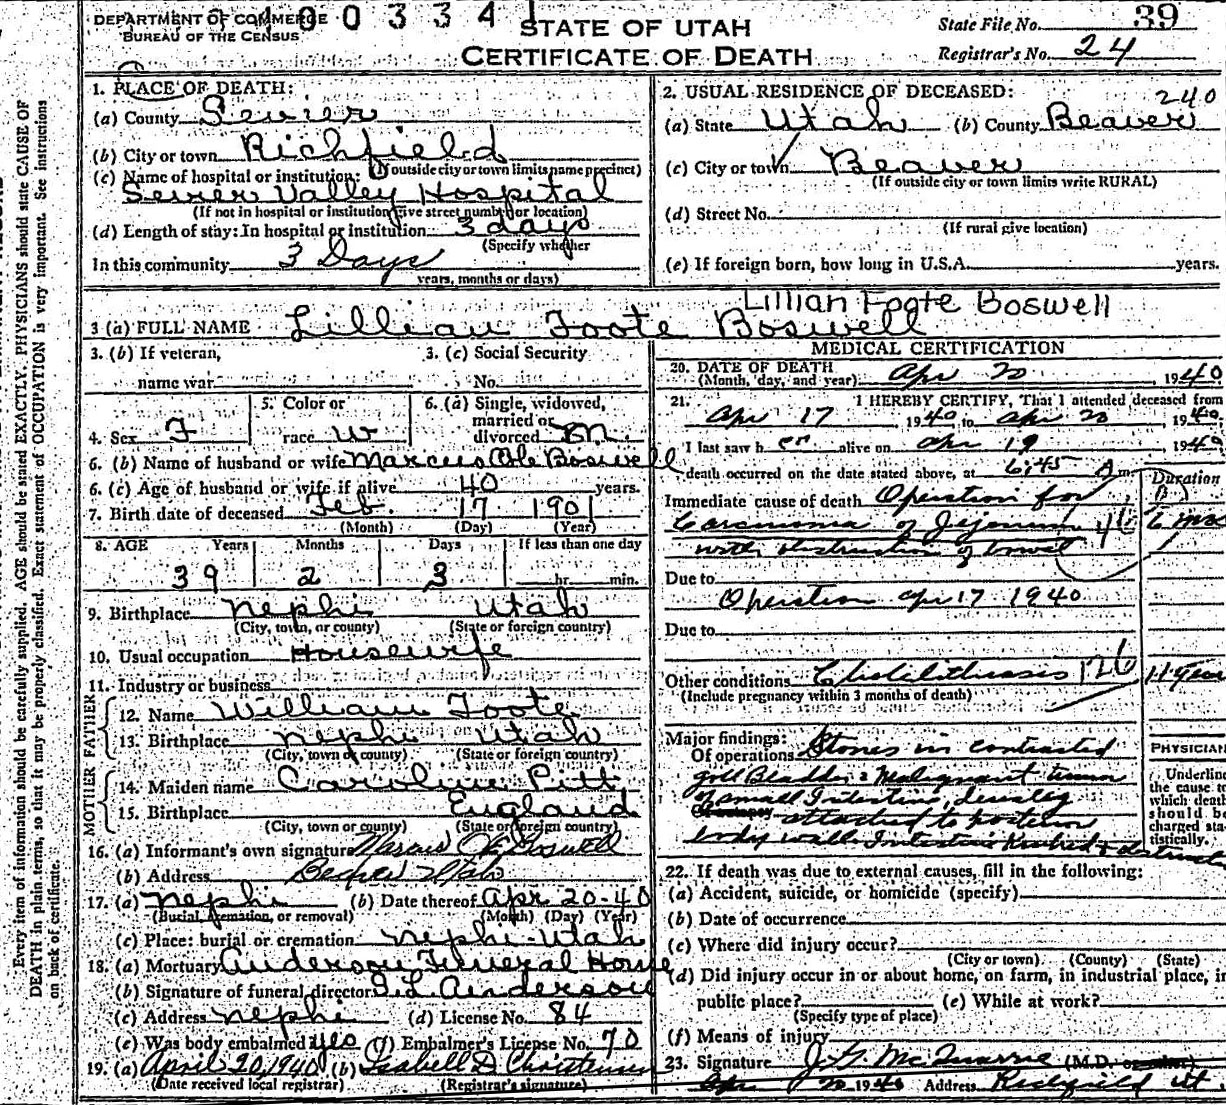 DEPARTMENT OF COMMERCE
BUREAU OF THE CENSUS
400334
STATE OF UTAH
CERTIFICATE OF DEATH
State File No. 39
Registrar's No. 24
Every item of information should be carefully supplied. AGE should be stated EXACTLY. PHYSICIANS should state CAUSE OF
DEATH in plain terms, so that it may be properly classified. Exact statement of OCCUPATION is very important. See instructions
on back of certificate.
1. PLACE OF DEATH:
(a) County Sevier
(b) City or town Richfield
(If outside city or town limits name precinct)
(c) Name of hospital or institution:
Sevier Valley Hospital
(If not in hospital or institution give street number or location)
(d) Length of stay: In hospital or institution 3 days
(Specify whether
In this community 3 Days
years, months or days)
2. USUAL RESIDENCE OF DECEASED:
240
(a) State Utah (b) County Beaver
(c) City or town Beaver
(If outside city or town limits write RURAL)
(d) Street No.
(If rural give location)
(e) If foreign born, how long in U.S.A. years.
Lillian Foote Boswell
3 (a) FULL NAME Lillian Foote Boswell
3. (b) If veteran,
name war
3. (c) Social Security
No.
4. Sex F
5. Color or
race W
6. (a) Single, widowed,
married or
divorced M.
6. (b) Name of husband or wife Marcus Ole Boswell
6. (c) Age of husband or wife if alive 40 years.
7. Birth date of deceased Feb. 17 1901
(Month) (Day) (Year)
8. AGE Years Months Days If less than one day
39 2 3 hr. min.
9. Birthplace Nephi Utah
(City, town, or county) (State or foreign country)
10. Usual occupation Housewife
11. Industry or business
FATHER
12. Name William Foote
13. Birthplace Nephi Utah
(City, town or county) (State or foreign country)
MOTHER
14. Maiden name Caroline Pitt
15. Birthplace England
(City, town or county) (State or foreign country)
16. (a) Informant's own signature Marcus Ole Boswell
(b) Address Beaver Utah
17. (a) Nephi (b) Date thereof Apr 20-40
(Burial, cremation, or removal) (Month) (Day) (Year)
(c) Place: burial or cremation Nephi-Utah
18. (a) Mortuary Anderson Funeral Home
(b) Signature of funeral director Anderson
(c) Address Nephi (d) License No. 84
(e) Was body embalmed yes (f) Embalmer's License No. 70
19. (a) April 20, 1940 (b) Isabell D. Christensen
(Date received local registrar) (Registrar's signature)
MEDICAL CERTIFICATION
20. DATE OF DEATH
(Month, day, and year) Apr 20, 1940
21. I HEREBY CERTIFY, That I attended deceased from
Apr 17 1940 to Apr 20, 1940
I last saw her alive on Apr 19 1940
death occurred on the date stated above, at 6:45 A m.
Duration
Immediate cause of death Operation for
Carcinoma of Jejunum 46 6 mos
with obstruction of bowel
Due to
Operation Apr 17 1940
Due to
Other conditions Cholelithiasis 126 11 year
(Include pregnancy within 3 months of death)
Major findings:
Of operations Stones in contracted
gall Bladder & Malignant tumor
of small Intestine, densley
attached to posterior
body wall. Intestine Kinked & obstructed
PHYSICIAN
Underline
the cause to
which death
should be
charged sta-
tistically.
22. If death was due to external causes, fill in the following:
(a) Accident, suicide, or homicide (specify)
(b) Date of occurrence
(c) Where did injury occur?
(City or town) (County) (State)
(d) Did injury occur in or about home, on farm, in industrial place, in
public place? (e) While at work?
(Specify type of place)
(f) Means of injury
23. Signature J. G. McQuarrie (M.D. or other)
Apr 20 1940 Address Richfield Ut